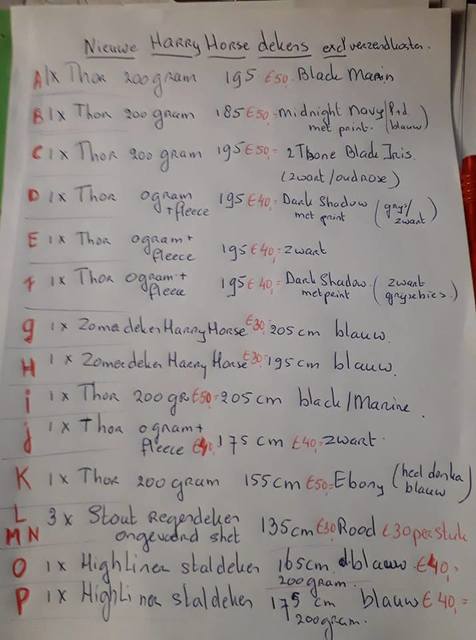 Nieuwe Harry Horse dekens excl verzendkosten.
A 1x Thor 200gram 195 €50,- Black Marin
B 1x Thor 200 gram 185 €50,- midnight navy Pnd
met print. (blauw)
C 1x Thor 200 gram 195 €50,- 2Tbone Black Iris.
(zwart/oudrose)
D 1x Thor 0gram 195 €40,- Dark Shadow (grys/
+fleece met print zwart)
E 1x Thor 0gram +
fleece 195 €40,- zwart
F 1x Thor 0gram + 195 €40,- Dark Shadow (zwart
fleece met peint grysebies)
g 1x Zomerdeken Harry Horse €30,- 205cm blauw.
H 1x Zomerdeken Harry Horse €30,- 195cm blauw.
i 1x Thor 200 gr €50,- 205cm black/Marine.
j 1x Thor 0gram +
fleece €40,- 175 cm €40,- zwart.
K 1x Thor 200gram 155cm €50,- Ebony (heel donker
blauw)
L 3x Stout Regendeken 135cm €30,- Rood €30 per stuk
MN ongevoerd shet
O 1x Highliner staldeken 165cm dblauw €40,-
200gram.
P 1x Highliner staldeken 175 cm blauw €40,=
200gram.